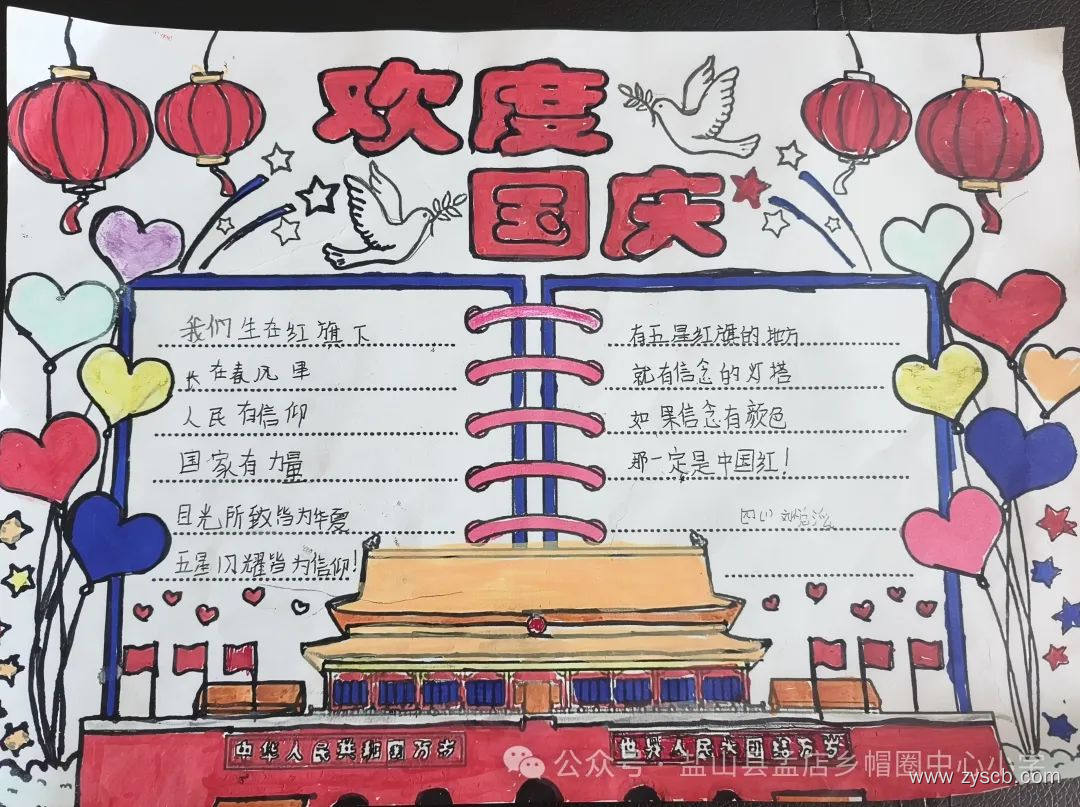 欢度
国庆
我们生在红旗下
长在春风里
人民有信仰
国家有力量
目光所致皆为华夏
五星闪耀皆为信仰!
有五星红旗的地方
就有信念的灯塔
如果信念有颜色
那一定是中国红!
四川
中华人民共和国万岁
世界人民大团结万岁
公众号·盐山县孟店乡帽圈中心小学
www.zyscb.com